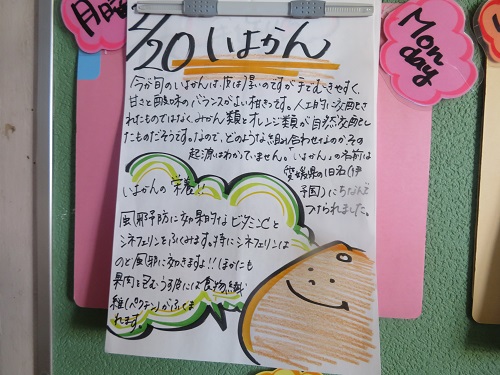 月曜
Mon
day
2/20 いよかん
今が旬のいよかんは、皮は厚いのですが手でむきやすく、
甘さと酸味のバランスがよい柑きつです。人工的に交配を
されたものではなく、みかん類とオレンジ類が自然交配をし
たものだそうです。なので、どのような組み合わせなのか、その
起源はわかっていません。「いよかん」の名前は
愛媛県の旧名(伊
予国)にちなんで
つけられました。
いよかんの栄養!!
風邪予防に効果的なビタミンCと
シネフェリンをふくみます。特にシネフェリンは
のど風邪に効きますよ!!ほかにも
果肉を包むうす皮には食物繊
維(ペクチン)がふくま
れます。